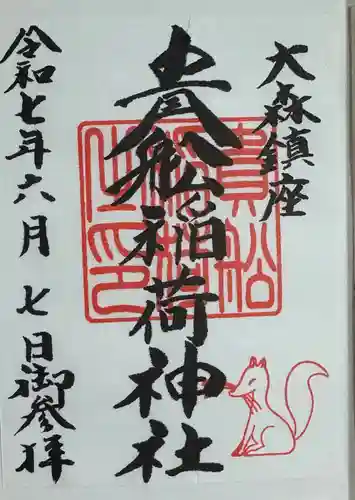 大森鎮座
貴舩稲荷神社
令和七年六月七日御参拝